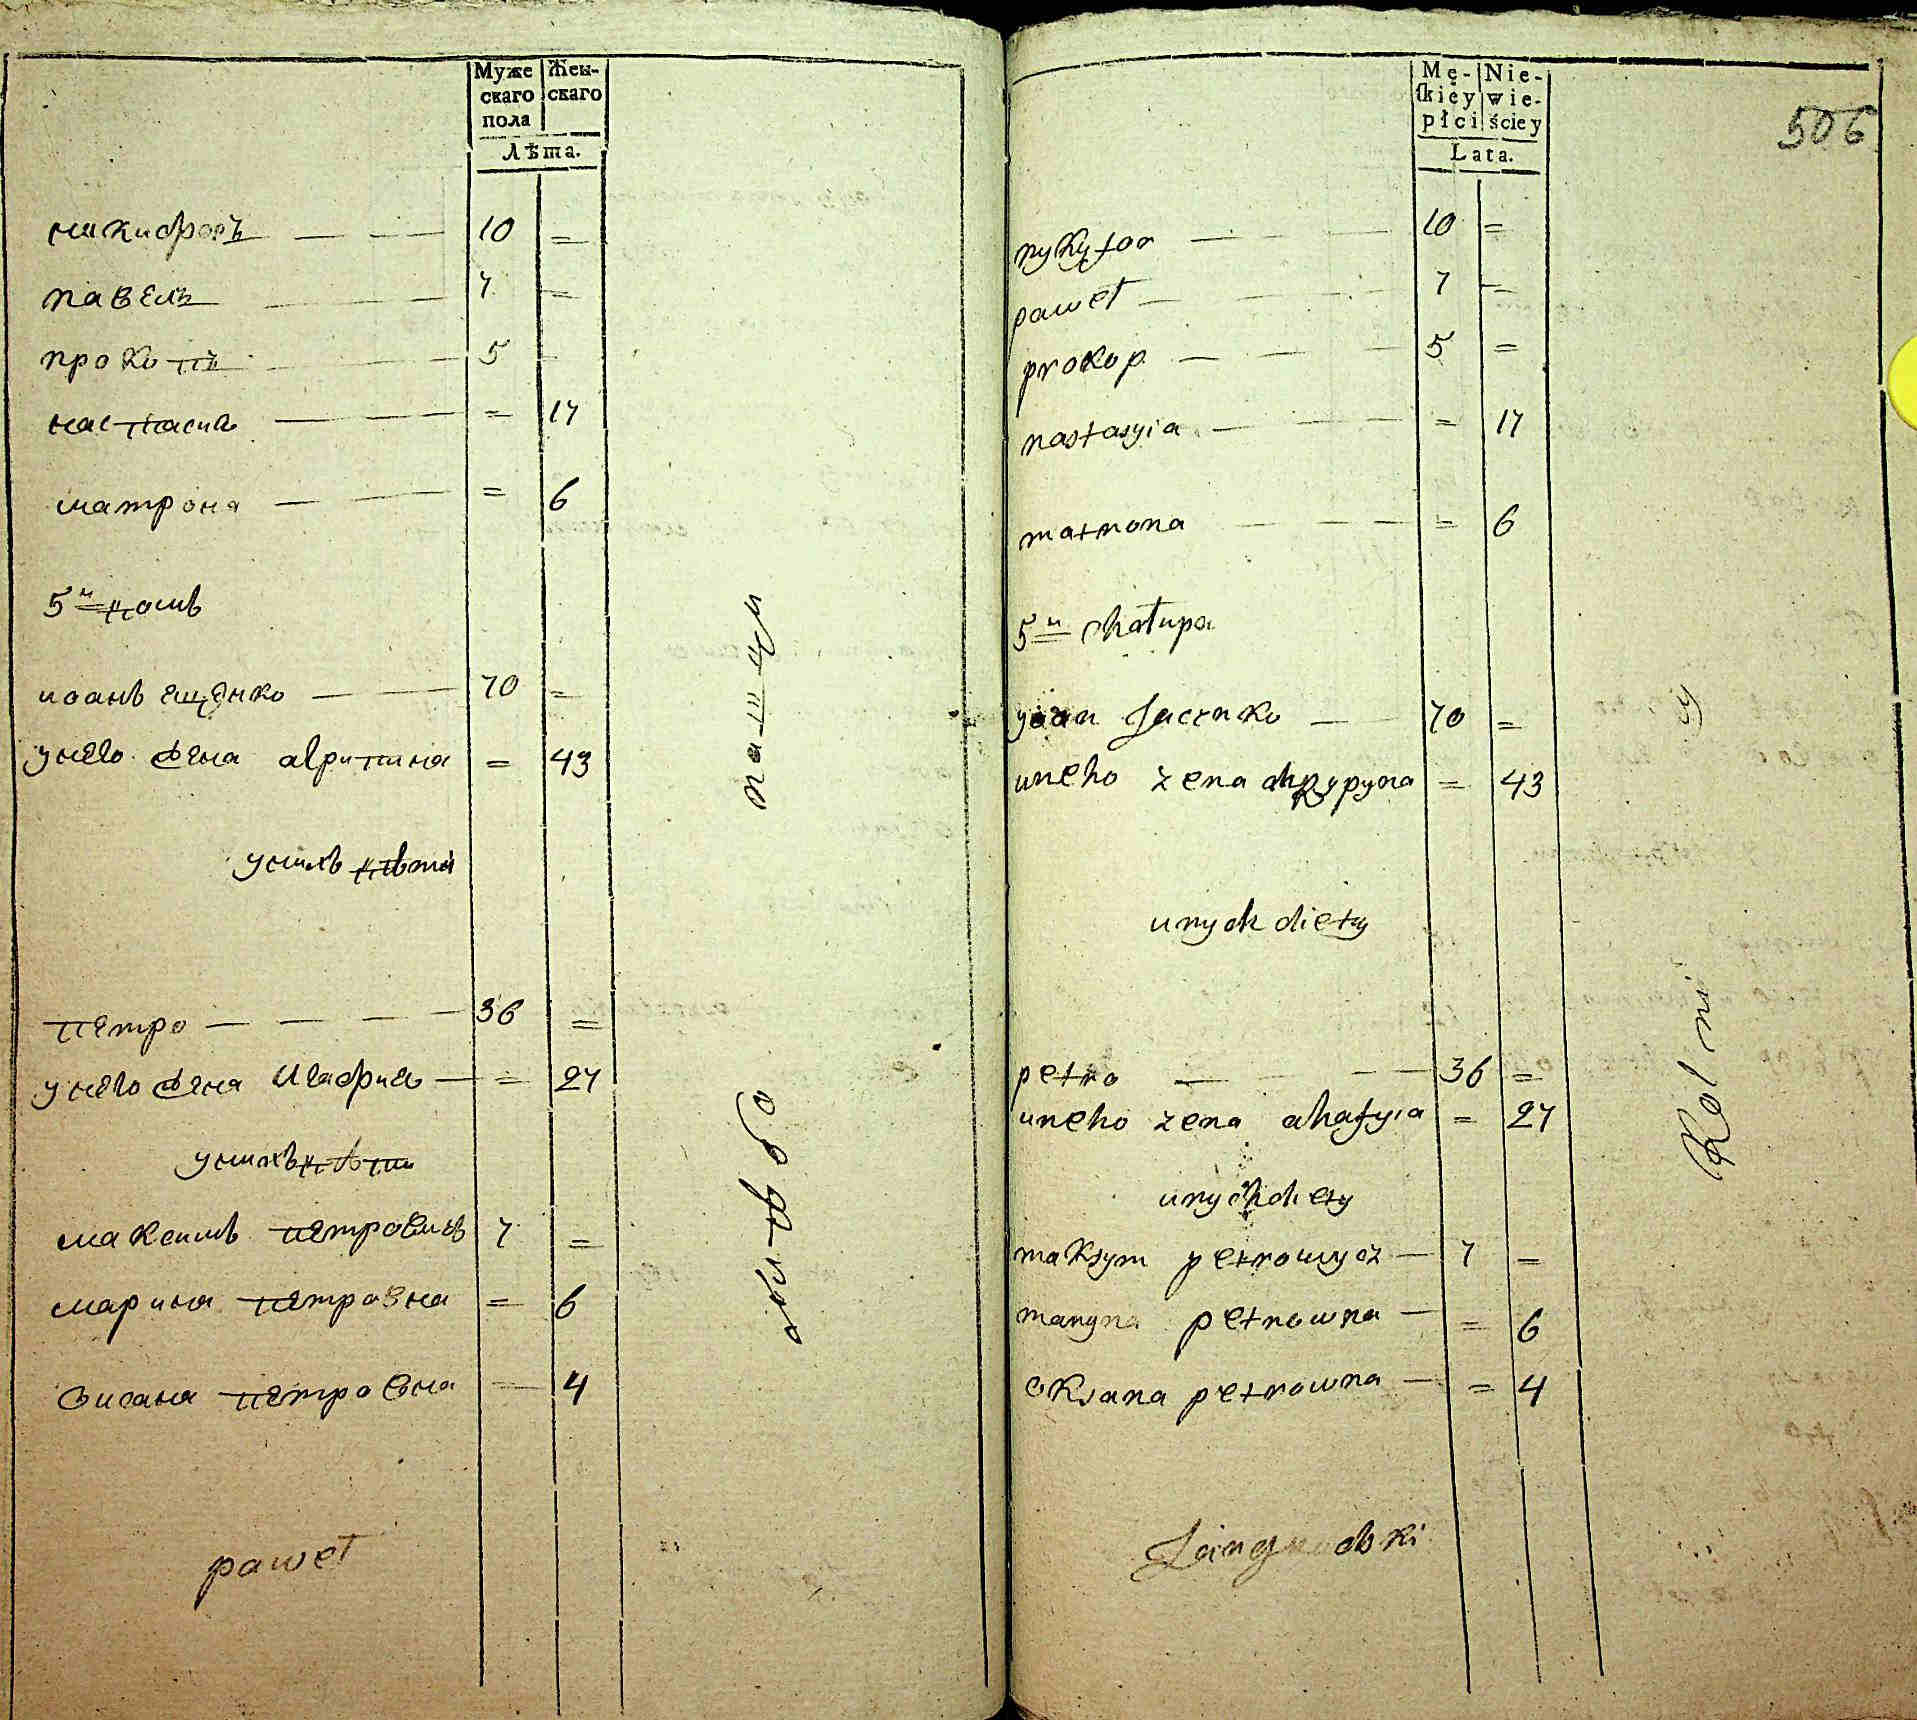 Муже Жен-
скаго скаго
пола
Лѣта.
никифоръ — — — 10 =
павелъ — — — 7 =
прокопъ — — — 5 =
настасия — — — = 17
матрона — — — = 6
5й домъ
иоанъ ещенко — — 70 =
унего жена агрипина = 43
унихъ дѣти
петро — — — — 36 =
унего жена Агафия — = 27
унихъ дѣти
максимъ петровичъ 7 =
марина петровна = 6
оксана петровна — 4
paweł
Mę- Nie-
ſkiéy wie-
płci ściey
Lata.
506
nykyfor — — — 10 =
paweł — — — 7 =
prokop — — — 5 =
nastasyia — — — = 17
matrona — — — = 6
5u chałupa
yoan Jacenko — — 70 =
uneho zena ahrypyna = 43
unych diety
petro — — — 36 =
uneho zena ahafyia = 27
unych diety
maksym petrowycz — 7 =
maryna petrowna — = 6
oksana petrowna — = 4